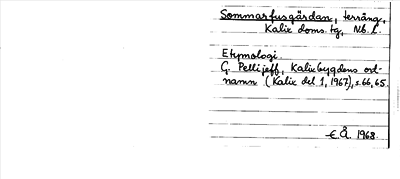 Sommarfusgärdan, terräng,
Kalix doms. tg, Nb. l.
Etymologi.
G. Pellijeff, Kalixbygdens ort-
namn (Kalix del 1, 1967), s. 66, 65.
E. Å. 1968.